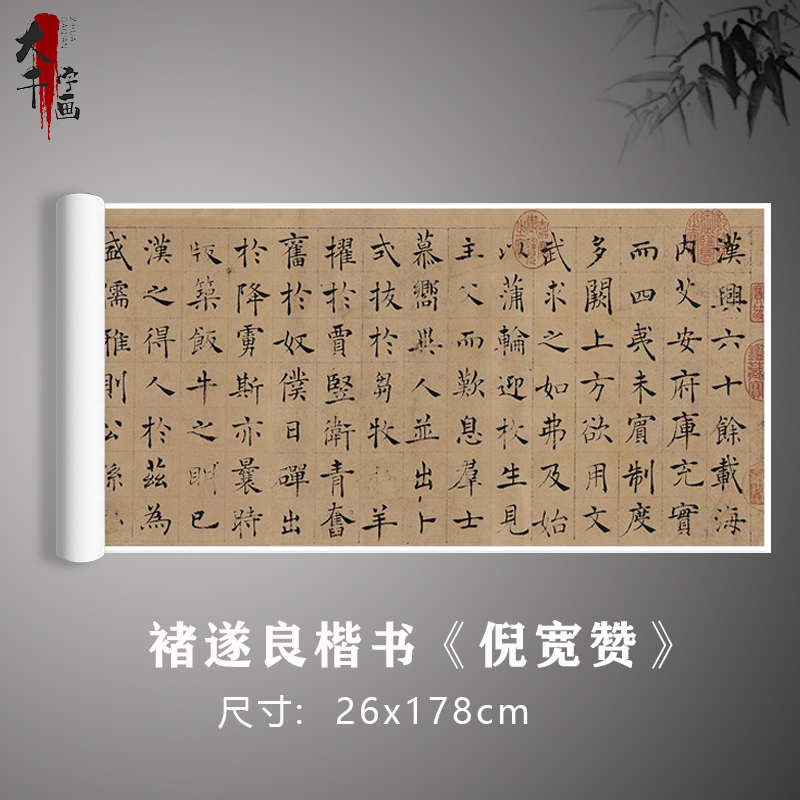 大千
字画
漢興六十餘載海
内艾安府庫充實
而四夷未賓制度
多闕上方欲用文
武求之如弗及始
以蒲輪迎枚生見
主父而歎息羣士
慕嚮異人並出卜
式拔於芻牧羊
擢於賈豎衛青奮
舊於奴僕日磾出
於降虜斯亦曩時
版築飯牛之眀已
漢之得人於茲為
盛儒雅則公孫
褚遂良楷书《倪宽赞》
尺寸: 26x178cm